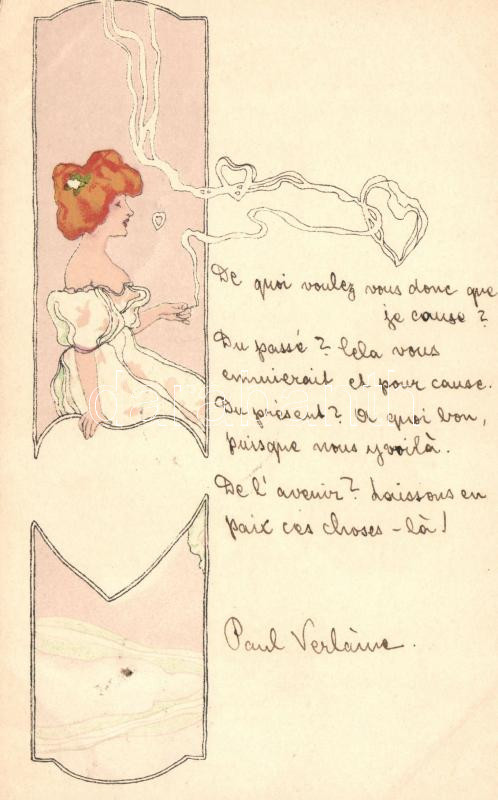 De quoi voulez vous donc que
je cause ?
Du passé ? Cela vous
ennuierait et pour cause.
Du présent ? A quoi bon,
puisque nous y voilà.
De l'avenir ? Laissons en
paix ces choses-là !
Paul Verlaine.